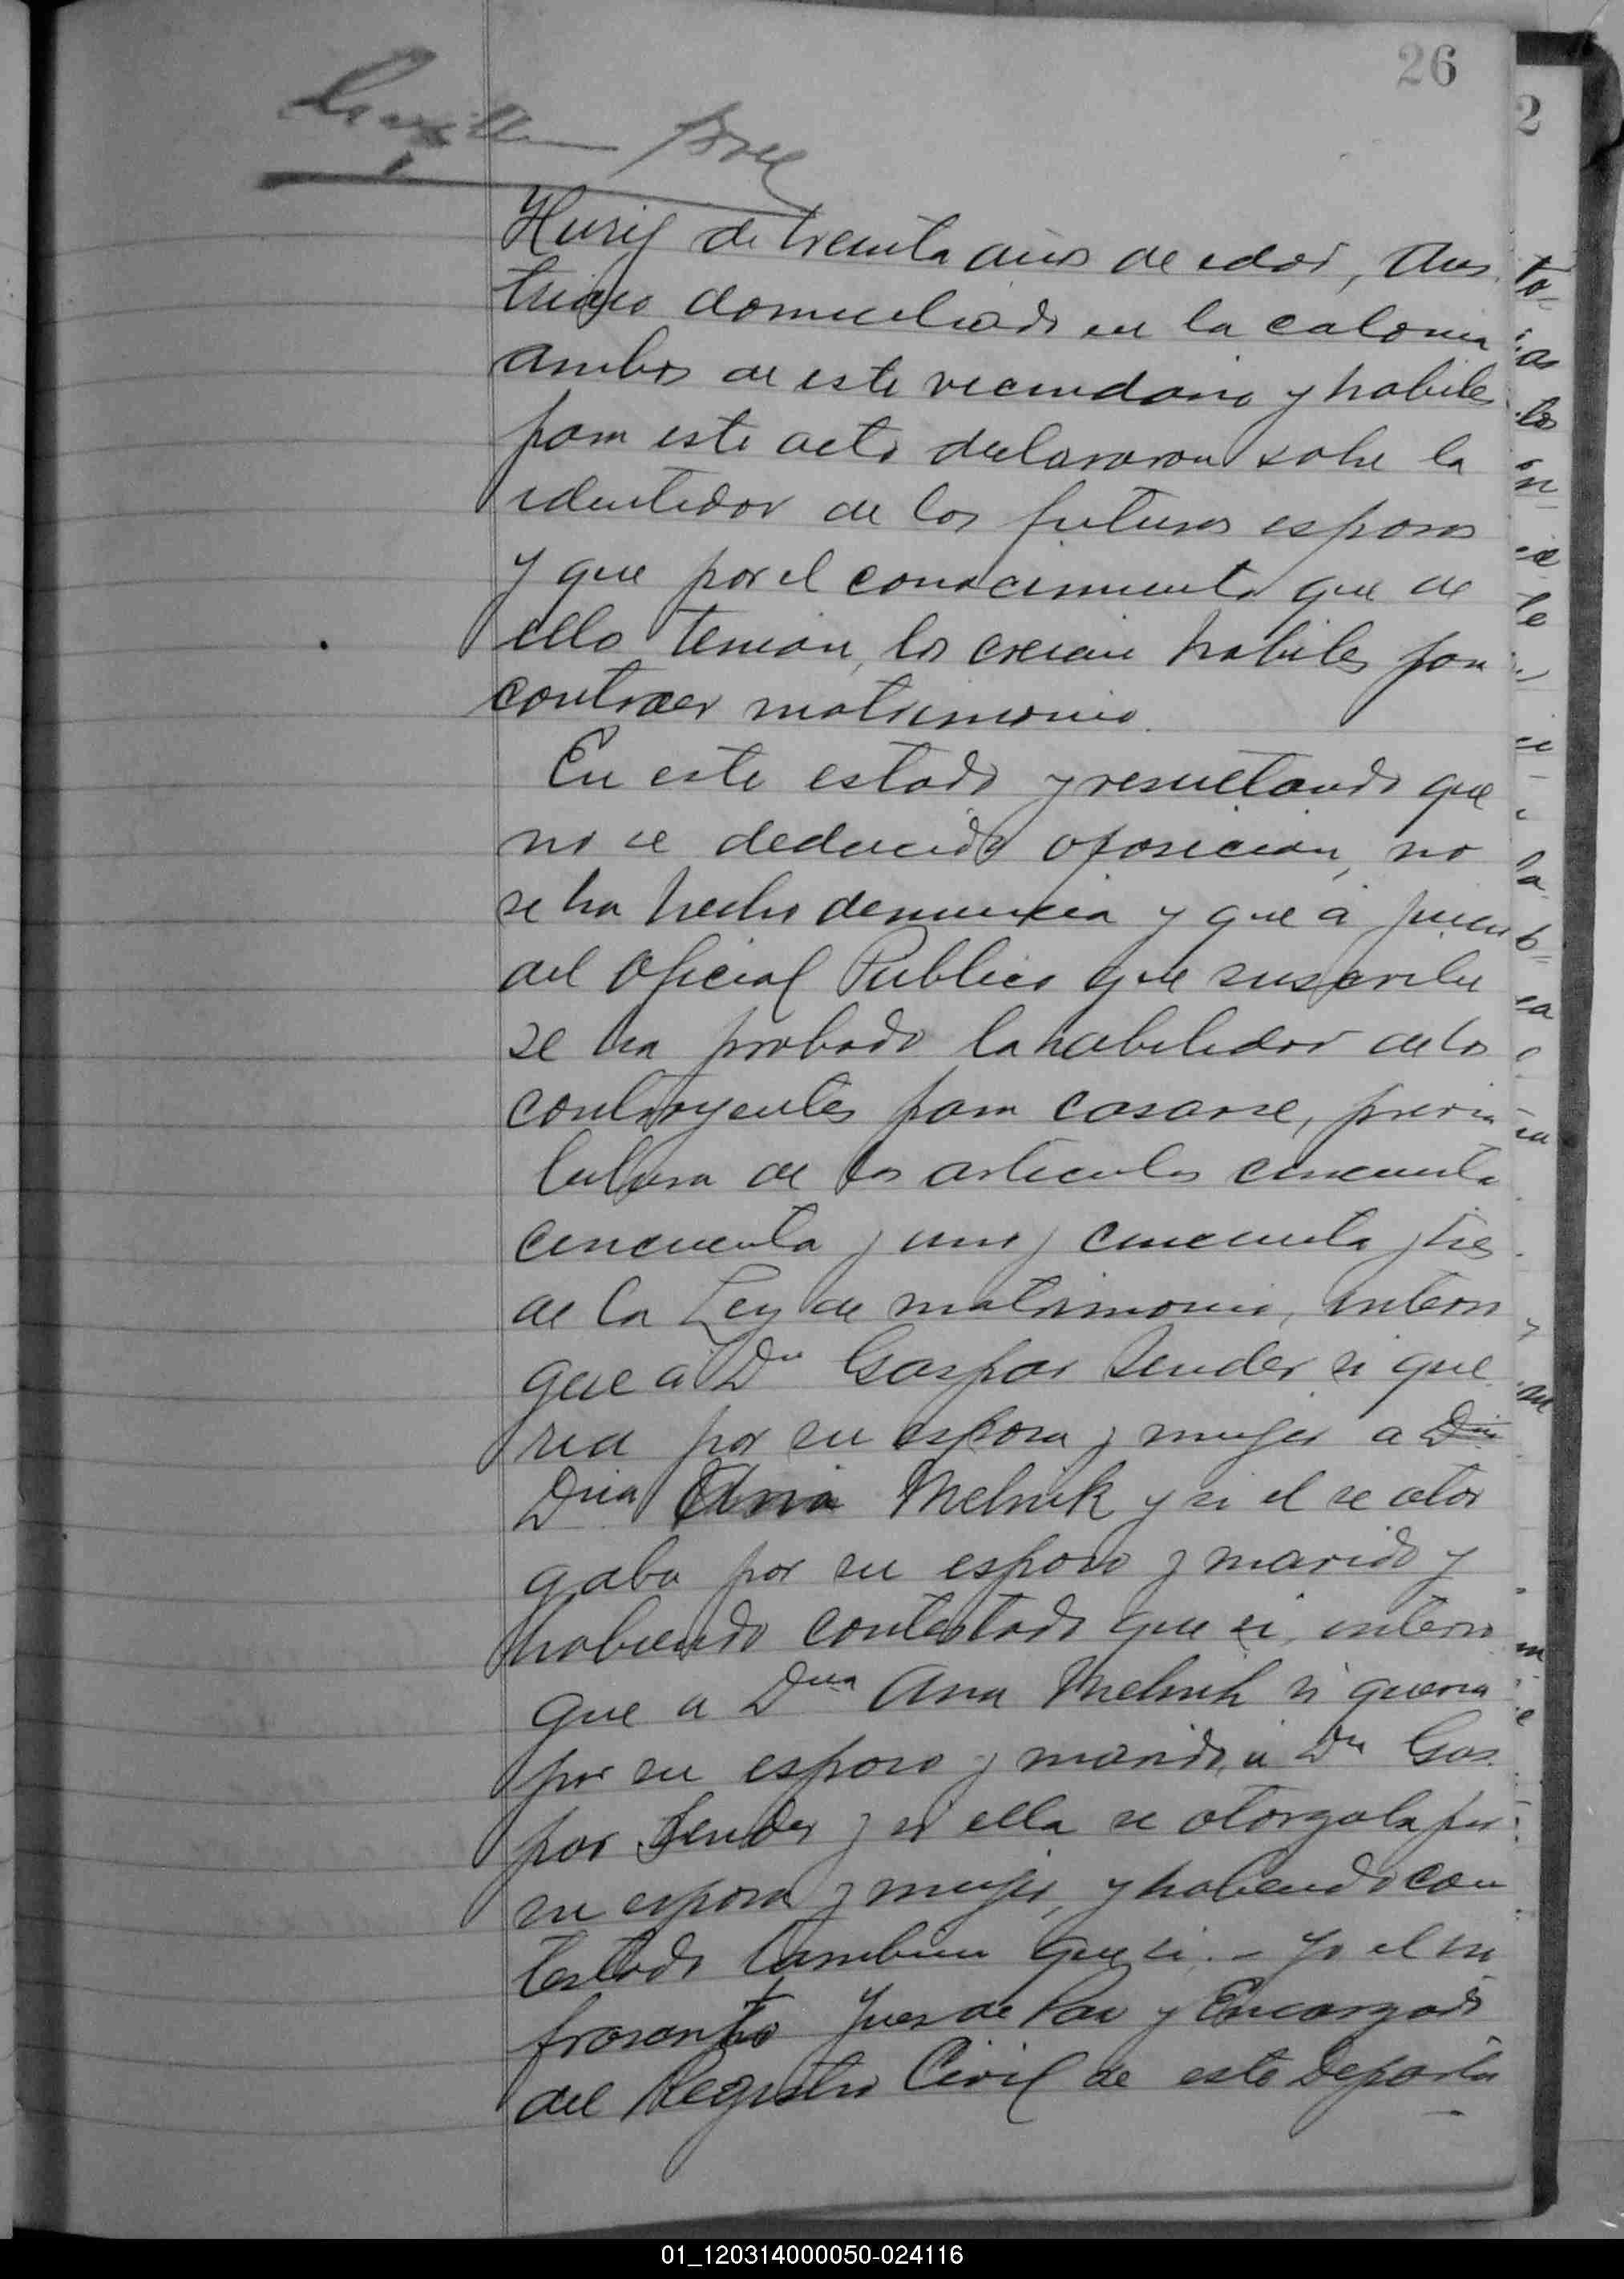 26
Huriy de treinta años de edad, Aus
triaco domiciliado en la colonia
ambos de este vecindario y habiles
para este acto declararon sobre la
identidad de los futuros esposos
y que por el conocimiento que de
ello tenian, los creian habiles para
contraer matrimonio.
En este estado y resultando que
no se deducido oposicion, no
se ha hecho denuncia y que á juicio
del Oficial Publico que suscribe
se ha probado la habilidad de los
contrayentes para casarse, previa
lectura de los articulos cincuenta
cincuenta y uno y cincuenta y tres
de la Ley de matrimonio, interro
gue a Dn Gaspar Sender si que
ria por su esposa y mujer a Dña
Dña Ana Melnik y si el se otor
gaba por su esposo y marido y
habiendo contestado que si, interro
gue a Dña Ana Melnik si queria
por su esposo y marido a Dn Gas
par Sender y si ella se otorgaba por
su esposa y mujer, y habiendo con
testado tambien que si. - Yo el in
frascripto Juez de Paz y Encargado
del Registro Civil de este Departa
01_120314000050-024116